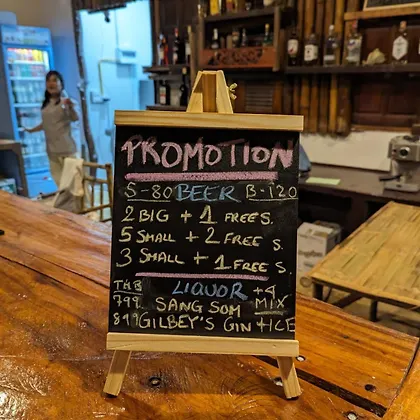 PROMOTION
S-80 BEER B-120
2 BIG + 1 FREE S.
5 SMALL + 2 FREE S.
3 SMALL + 1 FREE S.
THB LIQUOR +4
799 SANG SOM MIX
899 GILBEY'S GIN +ICE